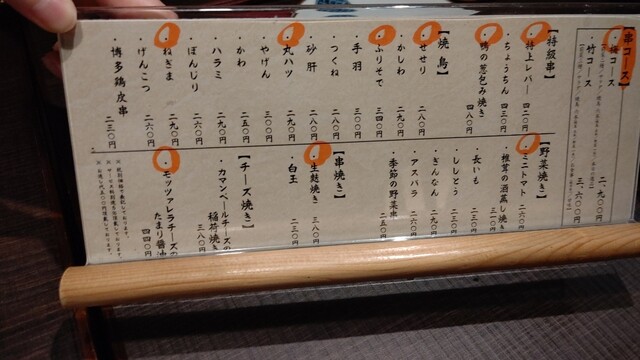 【串コース】
・桜コース
二、九〇〇円
・竹コース
三、六〇〇円
【特級串】
・特上レバー 四二〇円
・ちょうちん 四三〇円
・鴨の葱包み焼き 四八〇円
【焼鳥】
・せせり 二八〇円
・かしわ 二九〇円
・ふりそで 三四〇円
・手羽 三〇〇円
・つくね 二八〇円
・砂肝 二八〇円
・丸ハツ 二九〇円
・やげん 三〇〇円
・かわ 二五〇円
・ハラミ 二九〇円
・ぼんじり 二六〇円
・ねぎま 二九〇円
・げんこつ 二六〇円
・博多鶏皮串 二三〇円
【野菜焼き】
・ミニトマト 二六〇円
・椎茸の酒蒸し焼き 三一〇円
・長いも 二三〇円
・ししとう 二三〇円
・ぎんなん 二九〇円
・アスパラ 二六〇円
・季節の野菜串 二五〇円
【串焼き】
・生麩焼き 三八〇円
・白玉 二三〇円
【チーズ焼き】
・カマンベールチーズの
稲荷焼き 三八〇円
・モッツァレラチーズの
たまり醤油 四四〇円